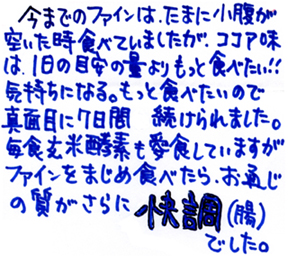 今までのファインは、たまに小腹が
空いた時食べていましたが、ココア味
は、1日の目安の量よりもっと食べたい!!
気持ちになる。もっと食べたいので
真面目に7日間 続けられました。
毎食玄米酵素も愛食していますが
ファインをまじめ食べたら、お通じ
の質がさらに 快調(腸)
でした。